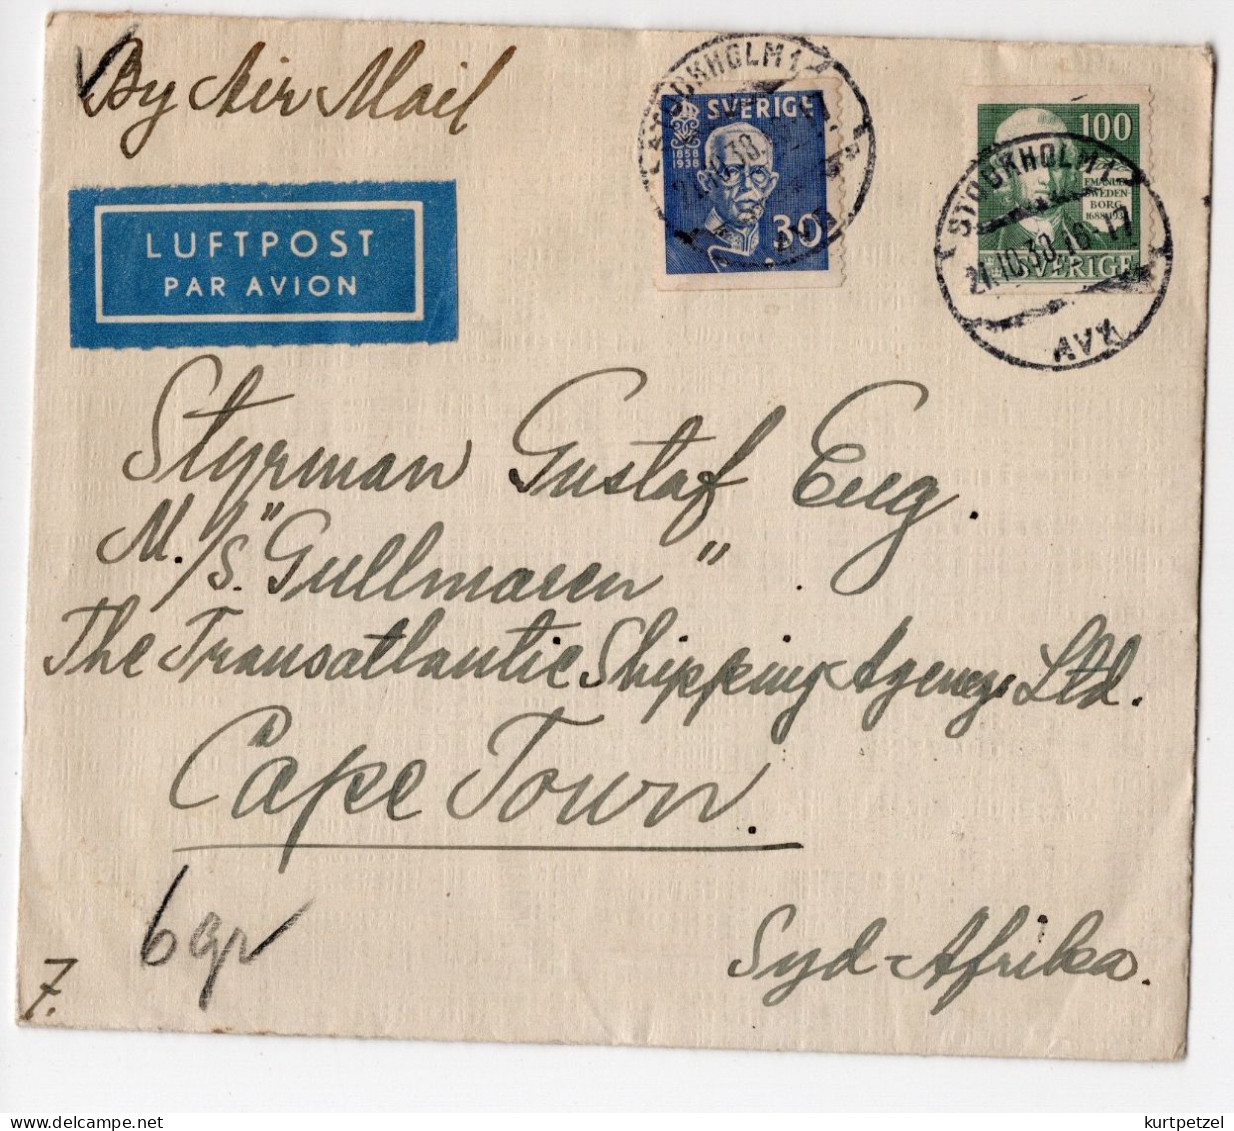 By Air Mail
LUFTPOST
PAR AVION
SVERIGE
1858
1938
30
STOCKHOLM 1
AVX
100
EMANUEL
SWEDEN-
BORG
SVERIGE
STOCKHOLM 1
21.10.38.16-17
AVX
Styrman Gustaf Eug.
M./S. "Gullmaren"
The Transatlantic Shipping Agency Ltd.
Cape Town.
6 gr
Syd-Afrika.
7.
kurtpetzel